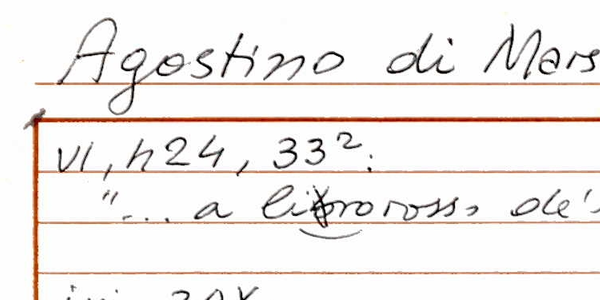 Agostino di Mars
VI, h24, 33²:
"... a librorosso de's
ivi